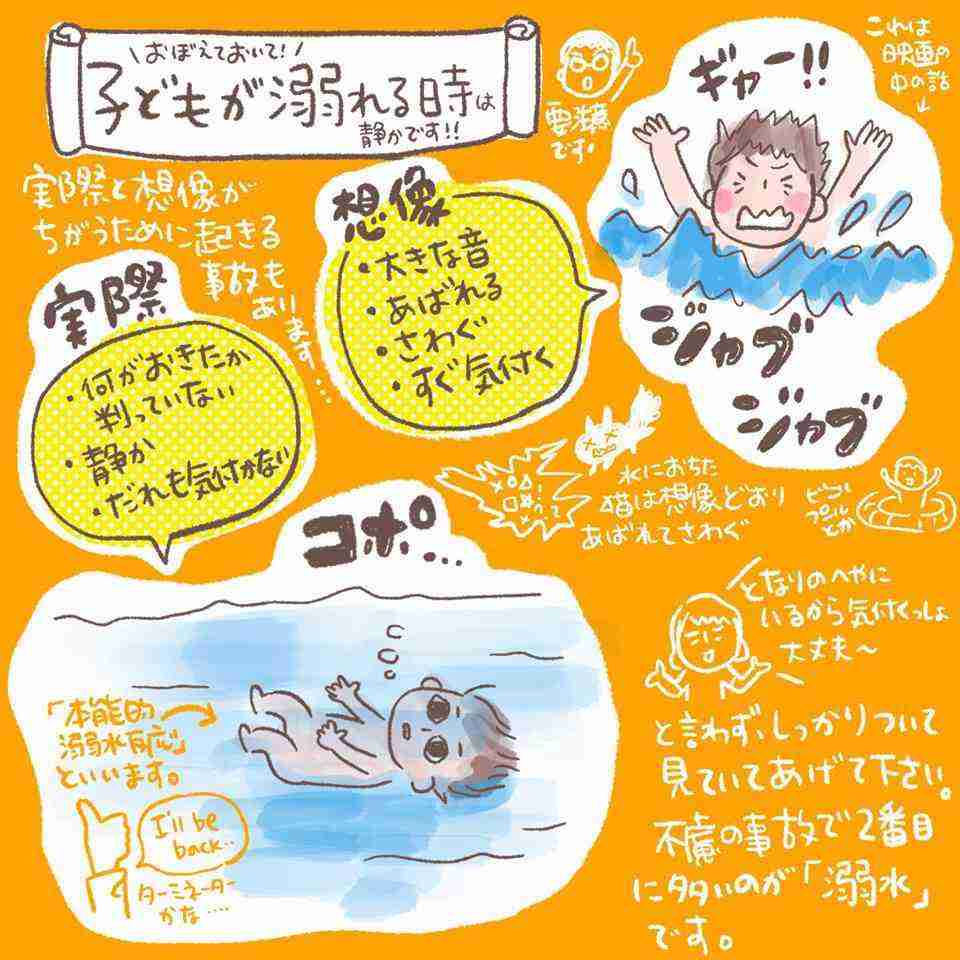 \おぼえておいて!/
子どもが溺れる時は
静かです!!
要注意
です・
これは
映画の
中の話
↓
ギャー!!
ジャブ
ジャブ
実際と想像が
ちがうために起きる
事故も
あります…
想像
・大きな音
・あばれる
・さわぐ
・すぐ気付く
実際
・何がおきたか
判っていない
・静か
・だれも気付かない
水におちた
猫は想像どおり
あばれてさわぐ
プール
とか
コポ…
「本能的
溺水反応」
といいます。
I'll be
back..
ターミネーター
かな....
となりのへやに
いるから気付くっしょ
大丈夫〜
と言わず、しっかりついて
見ていてあげて下さい。
不慮の事故で2番目
に多いのが「溺水」
です。